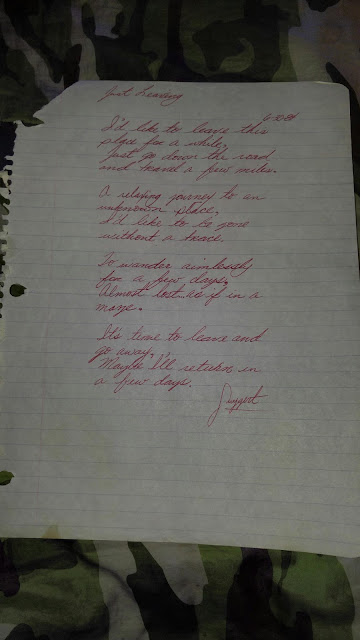 Just Leaving
6-30-84
I'd like to leave this
place for a while,
Just go down the road
and travel a few miles.
A relaxing journey to an
unknown place,
I'd like to be gone
without a trace.
To wander aimlessly
for a few days,
Almost lost as if in a
maze.
It's time to leave and
go away,
Maybe I'll return in
a few days.